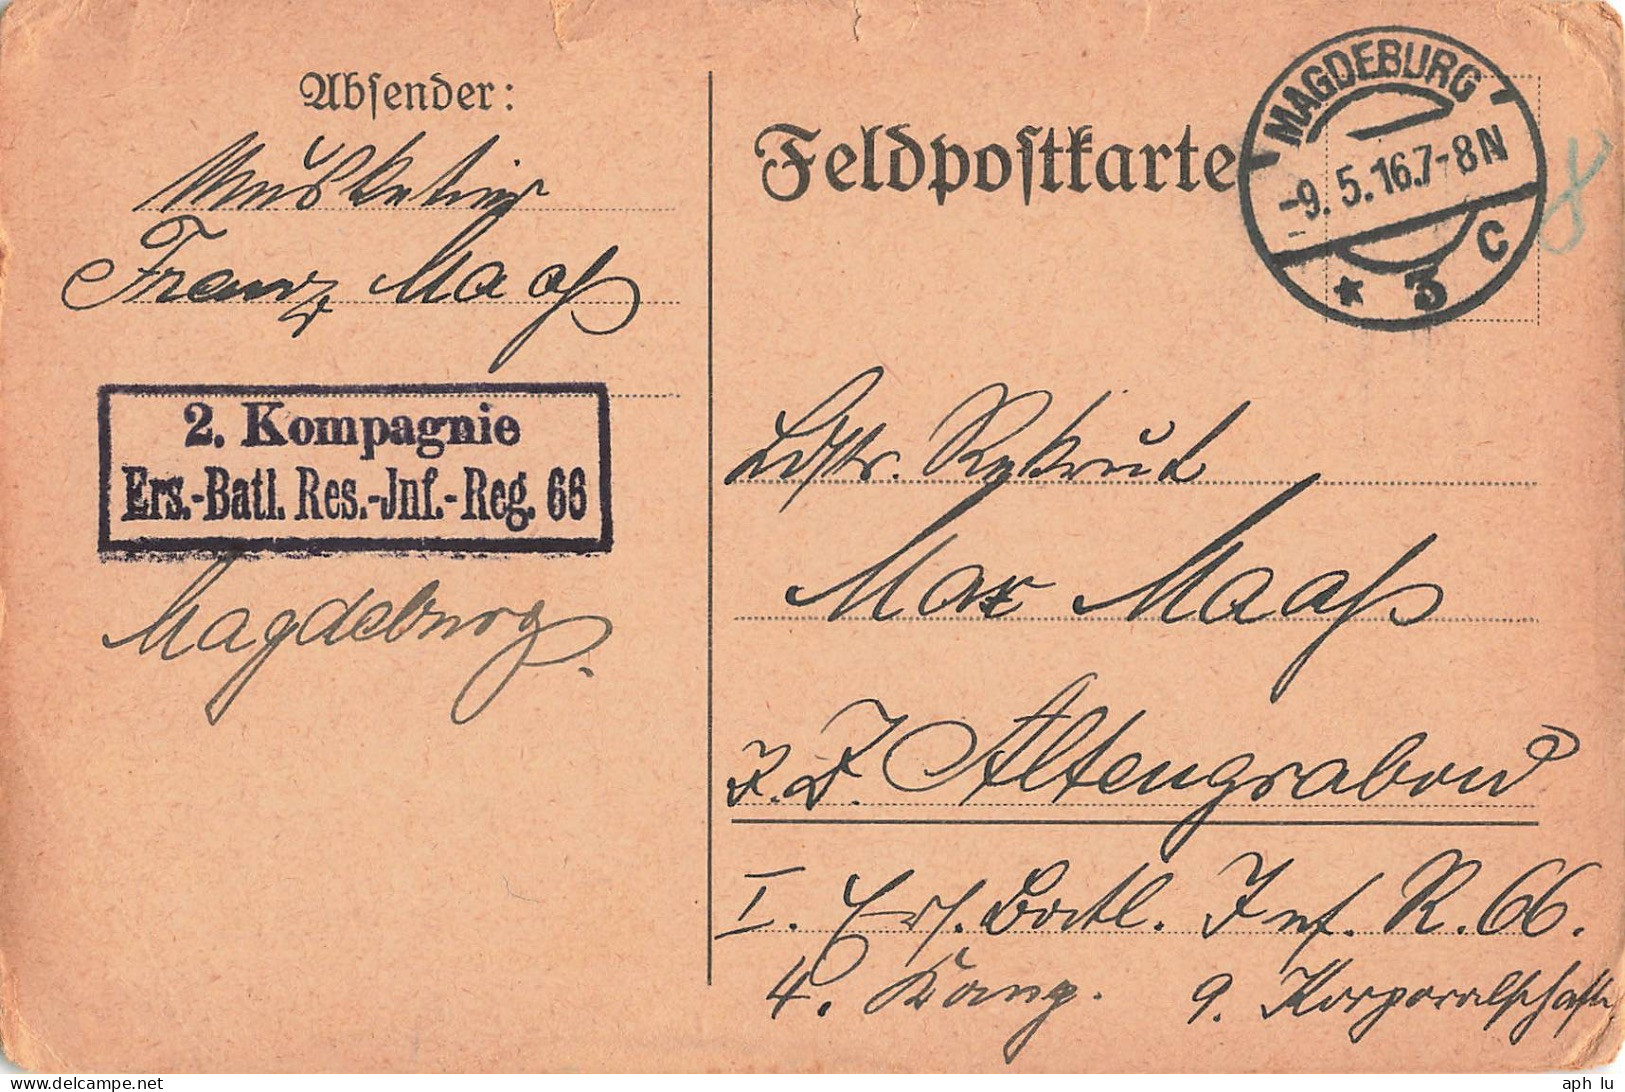 Absender:
Musketier
Franz Maaß
2. Kompagnie
Ers.-Batl. Res.-Jnf.-Reg. 66
Magdeburg.
Feldpostkarte
MAGDEBURG
-9.5.16.7-8N
* 3 c
8
Ldstr. Rekrut
Max Maaß
z. Z. Altengrabow
I. Ers. Batl. Inf. R. 66.
4. Komp. 9. Korporalschaft
aph lu